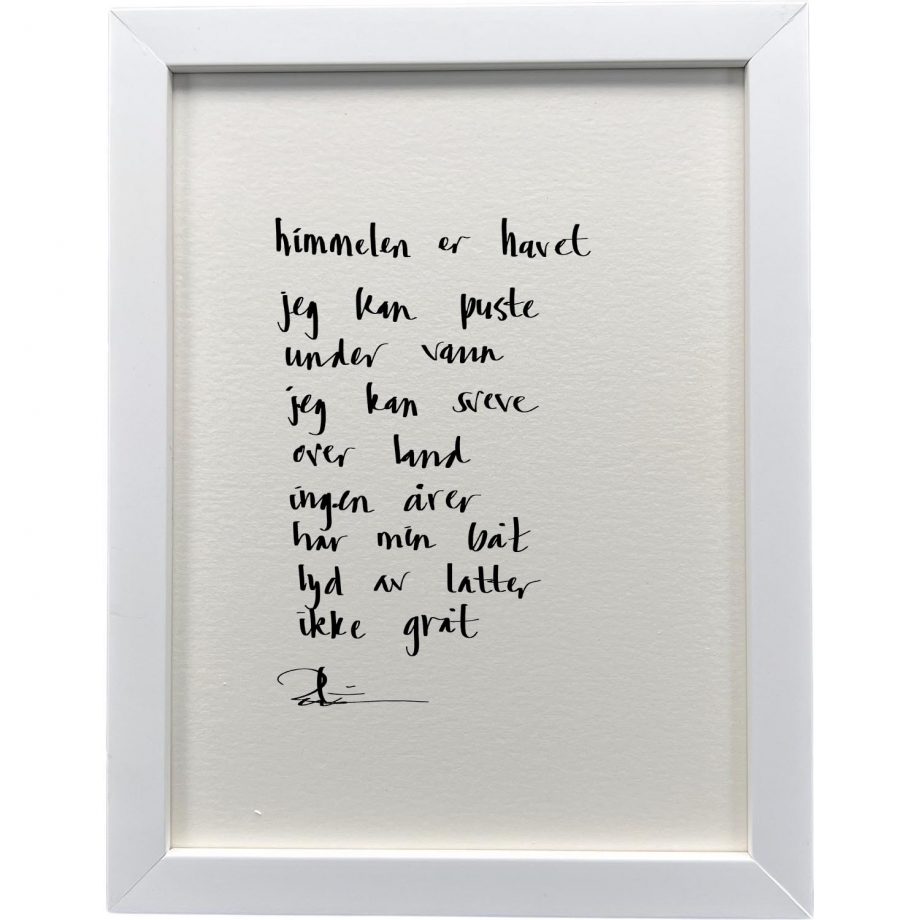 himmelen er havet
jeg kan puste
under vann
jeg kan sveve
over land
ingen årer
har min båt
lyd av latter
ikke gråt